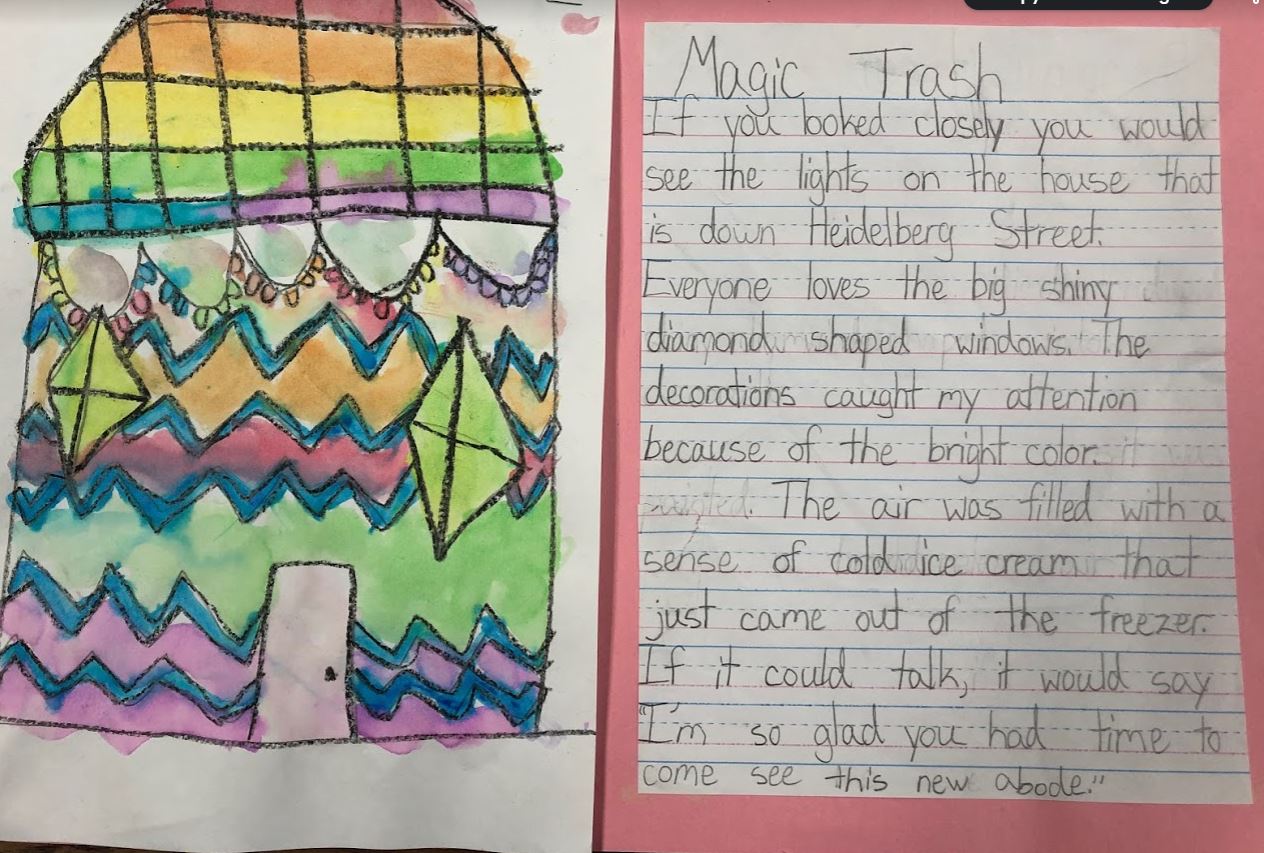 Magic Trash
If you looked closely you would
see the lights on the house that
is down Heidelberg Street.
Everyone loves the big shiny
diamond shaped windows. The
decorations caught my attention
because of the bright color. it
The air was filled with a
sense of cold ice cream that
just came out of the freezer.
If it could talk, it would say
"I'm so glad you had time to
come see this new abode."